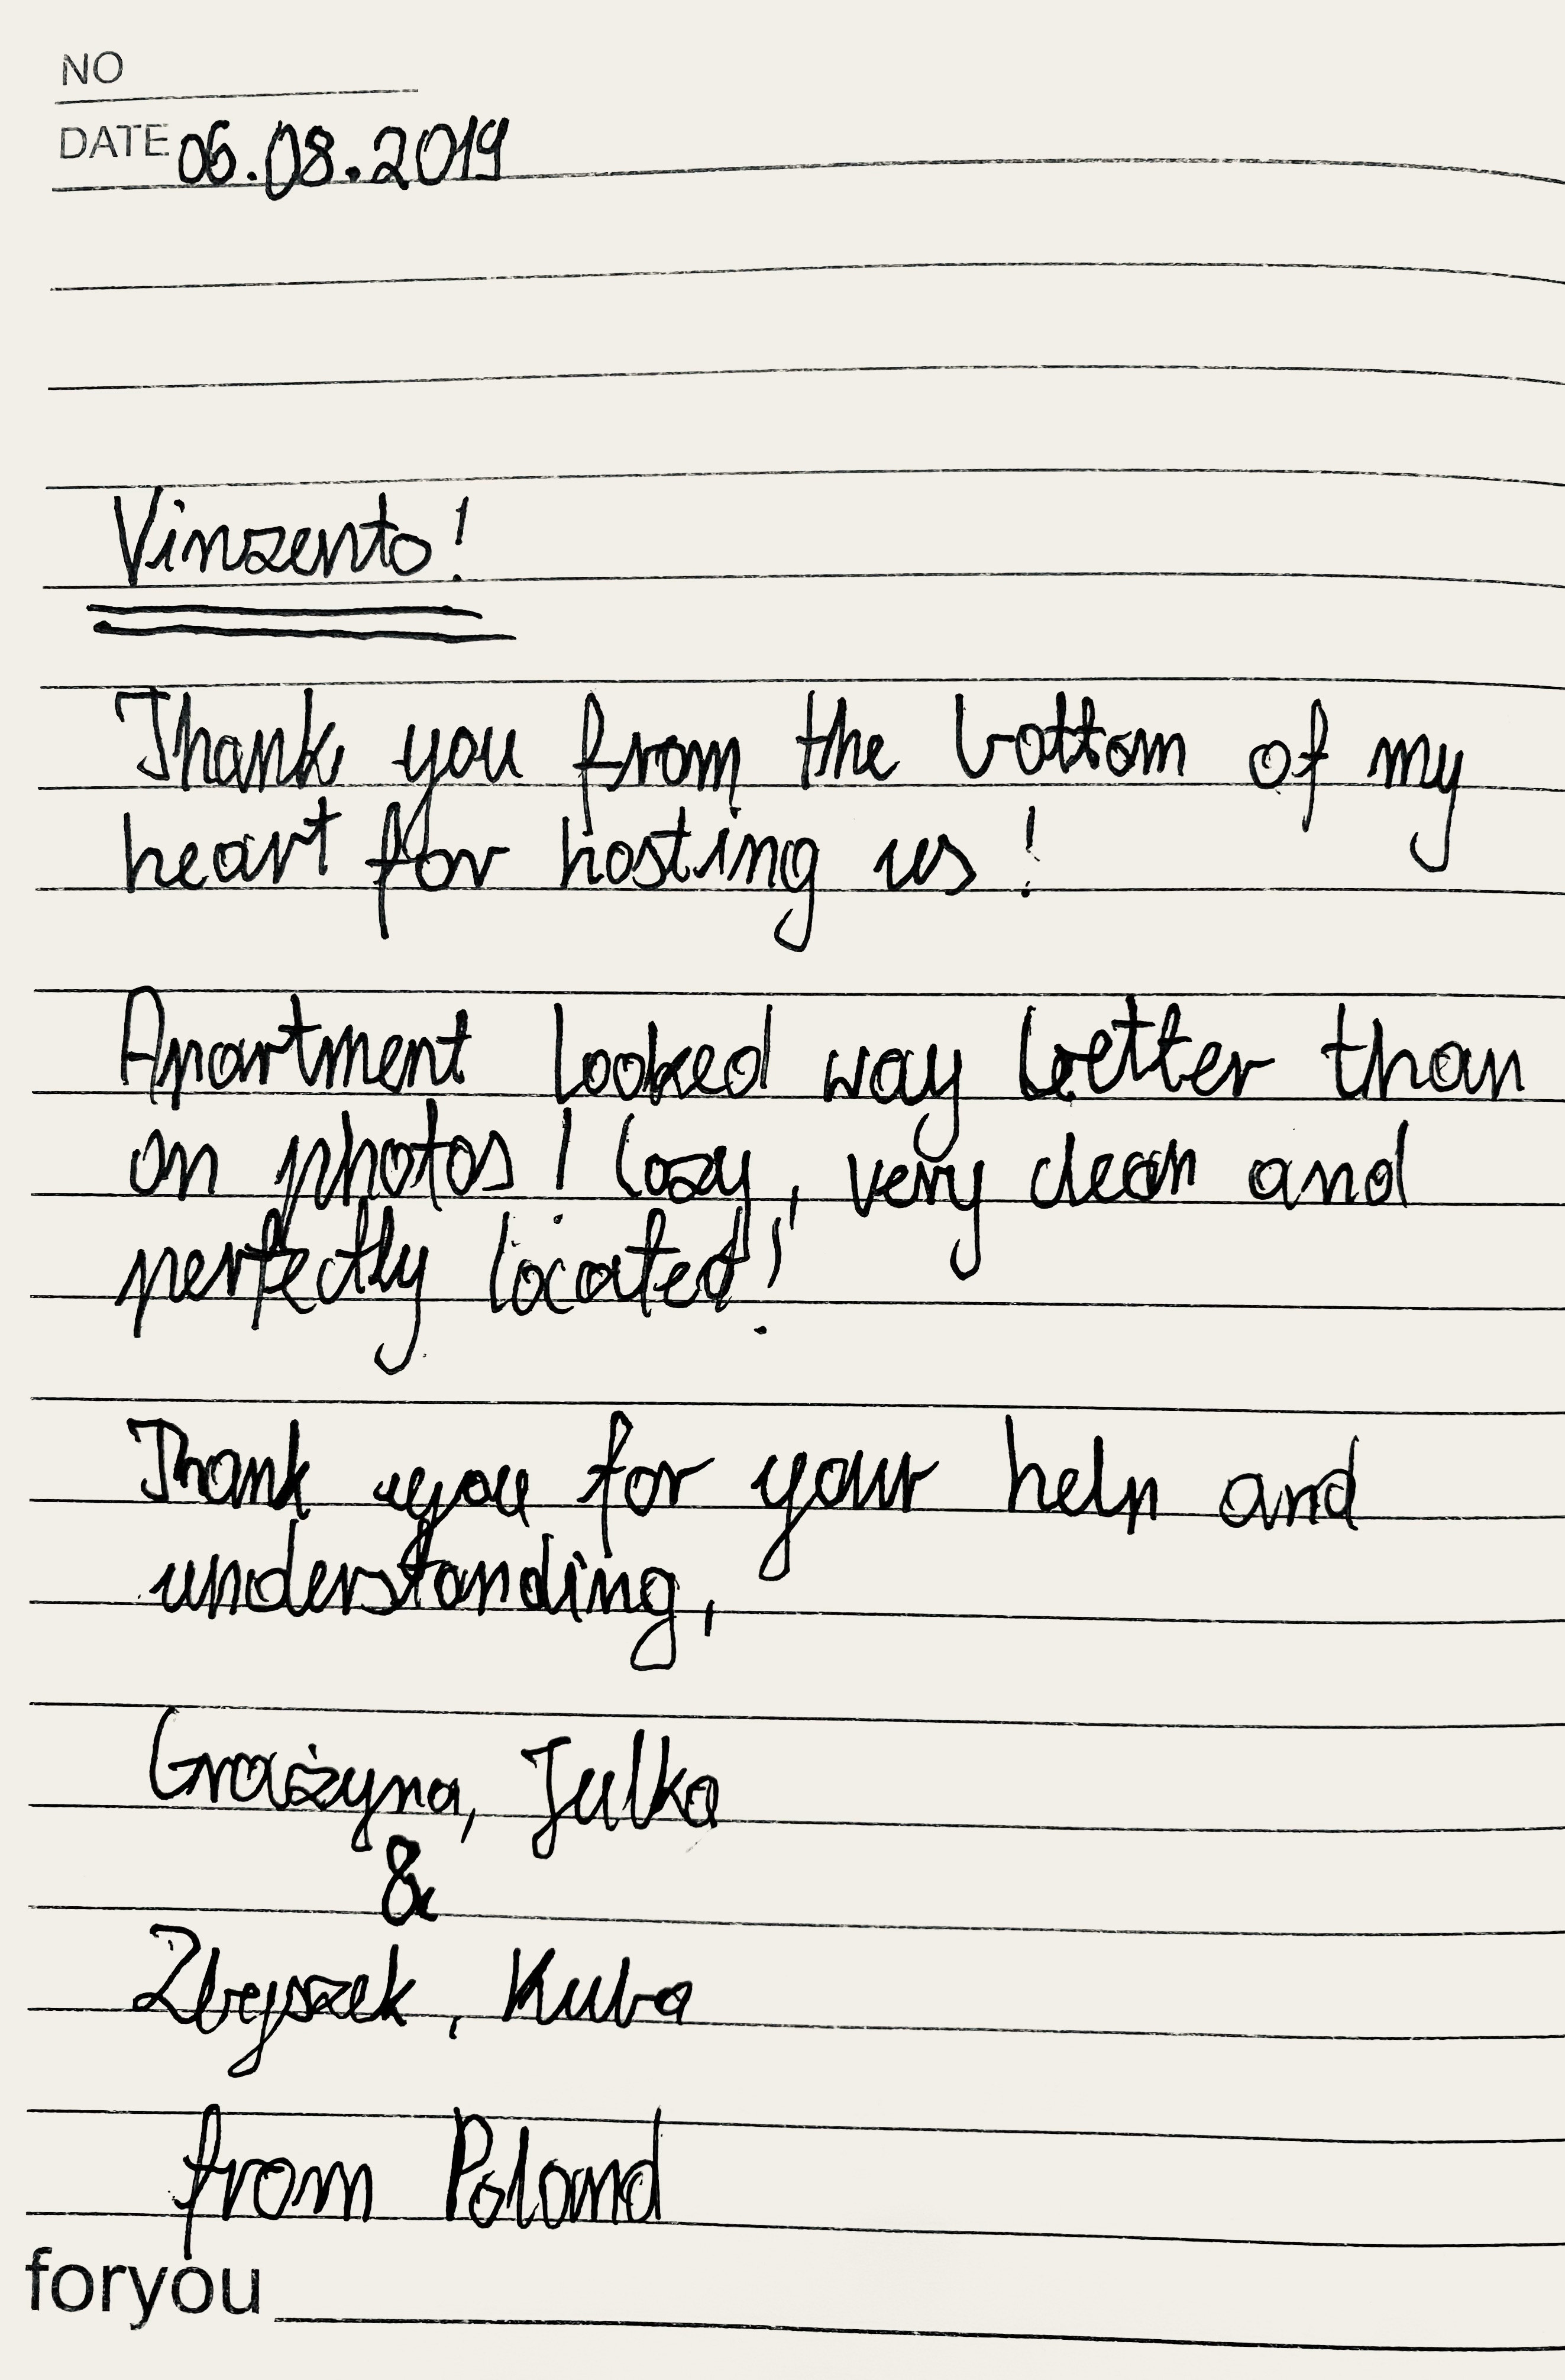 NO
DATE 06.08.2019
Vinzento!
Thank you from the bottom of my
heart for hosting us!
Apartment looked way better than
on photos! Cozy, very clean and
perfectly located!
Thank you for your help and
understanding,
Grażyna, Julka
&
Zbyszek, Kuba
from Poland
foryou